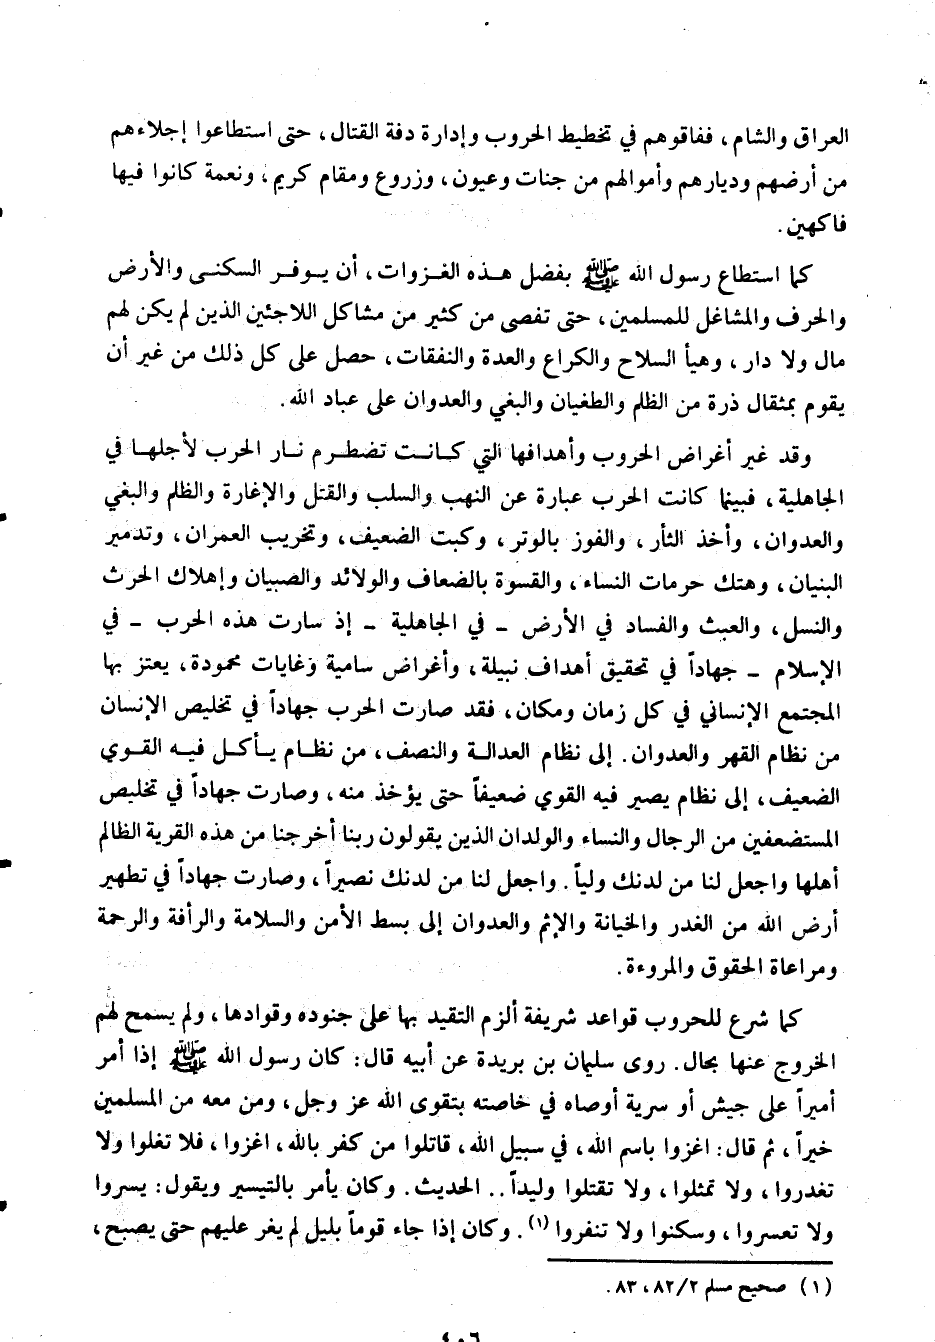 العراق والشام، ففاقوهم في تخطيط الحروب وإدارة دفة القتال، حتى استطاعوا إجلاءهم
من أرضهم وديارهم وأموالهم من جنات وعيون، وزروع ومقام كريم، ونعمة كانوا فيها
فاكهين.
كما استطاع رسول الله ﷺ بفضل هذه الغزوات، أن يوفر السكنى والأرض
والحرف والمشاغل للمسلمين، حتى تفصى من كثير من مشاكل اللاجئين الذين لم يكن لهم
مال ولا دار، وهيأ السلاح والكراع والعدة والنفقات، حصل على كل ذلك من غير أن
يقوم بمثقال ذرة من الظلم والطغيان والبغي والعدوان على عباد الله.
وقد غير أغراض الحروب وأهدافها التي كانت تضطرم نار الحرب لأجلها في
الجاهلية، فبينما كانت الحرب عبارة عن النهب والسلب والقتل والإغارة والظلم والبغي
والعدوان، وأخذ الثأر، والفوز بالوتر، وكبت الضعيف، وتخريب العمران، وتدمير
البنيان، وهتك حرمات النساء، والقسوة بالضعاف والولائد والصبيان وإهلاك الحرث
والنسل، والعبث والفساد في الأرض - في الجاهلية - إذ سارت هذه الحرب - في
الإسلام - جهاداً في تحقيق أهداف نبيلة، وأغراض سامية وغايات محمودة، يعتز بها
المجتمع الإنساني في كل زمان ومكان، فقد صارت الحرب جهاداً في تخليص الإنسان
من نظام القهر والعدوان. إلى نظام العدالة والنصف، من نظام يأكل فيه القوي
الضعيف، إلى نظام يصير فيه القوي ضعيفاً حتى يؤخذ منه، وصارت جهاداً في تخليص
المستضعفين من الرجال والنساء والولدان الذين يقولون ربنا أخرجنا من هذه القرية الظالم
أهلها واجعل لنا من لدنك ولياً. واجعل لنا من لدنك نصيراً، وصارت جهاداً في تطهير
أرض الله من الغدر والخيانة والإثم والعدوان إلى بسط الأمن والسلامة والرأفة والرحمة
ومراعاة الحقوق والمروءة.
كما شرع للحروب قواعد شريفة ألزم التقيد بها على جنوده وقوادها، ولم يسمح لهم
الخروج عنها بحال. روى سليمان بن بريدة عن أبيه قال: كان رسول الله ﷺ إذا أمر
أميراً على جيش أو سرية أوصاه في خاصته بتقوى الله عز وجل، ومن معه من المسلمين
خيراً، ثم قال: اغزوا باسم الله، في سبيل الله، قاتلوا من كفر بالله، اغزوا، فلا تغلوا ولا
تغدروا، ولا تمثلوا، ولا تقتلوا وليداً.. الحديث. وكان يأمر بالتيسير ويقول: يسروا
ولا تعسروا، وسكنوا ولا تنفروا (١). وكان إذا جاء قوماً بليل لم يغر عليهم حتى يصبح،
(١) صحيح مسلم ٨٢/٢، ٨٣.
٤٠٦